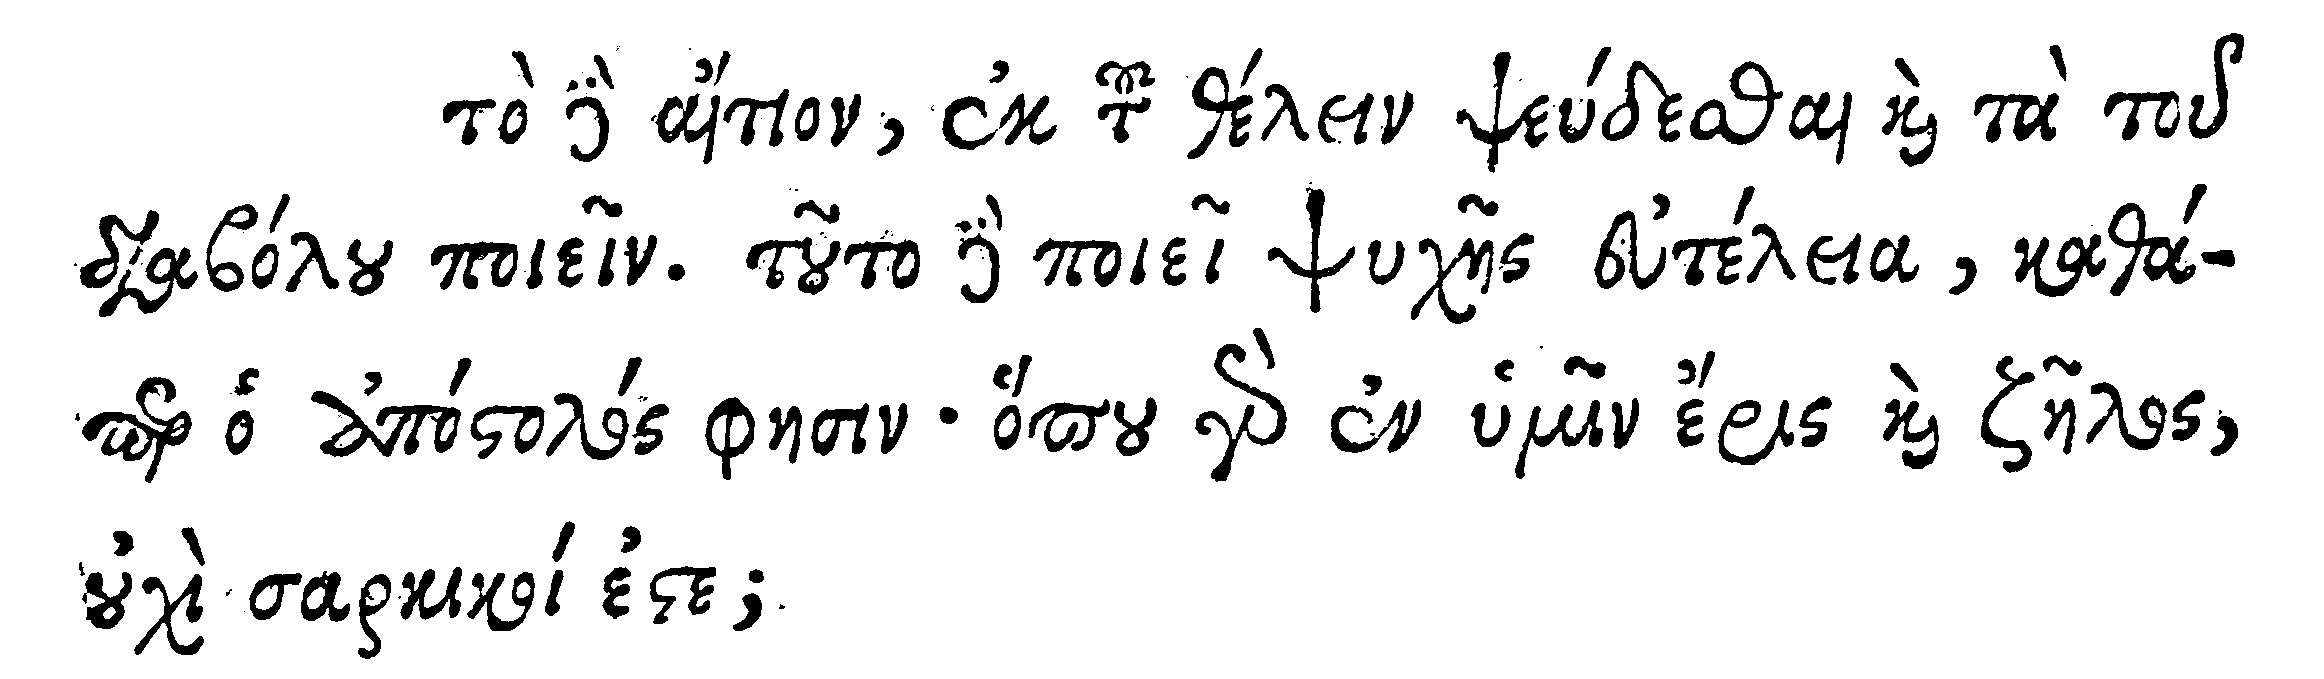 τὸ δὲ αἴτιον, ἐκ τοῦ θέλειν ψεύδεσθαι καὶ τὰ τοῦ
διαβόλου ποιεῖν. τοῦτο δὲ ποιεῖ ψυχῆς εὐτέλεια, καθά-
περ ὁ ἀπόστολός φησιν· ὅπου γὰρ ἐν ὑμῖν ἔρις καὶ ζῆλος,
οὐχὶ σαρκικοί ἐστε;